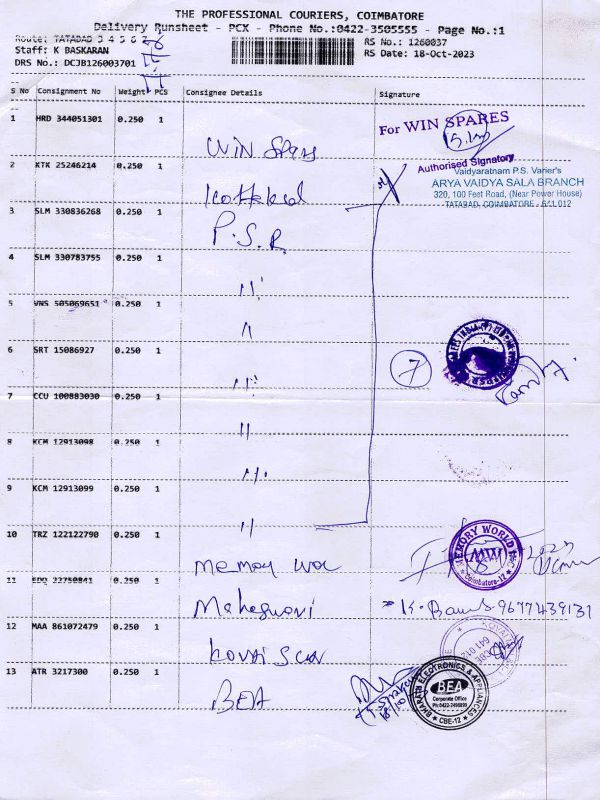 THE PROFESSIONAL COURIERS, COIMBATORE
Delivery Runsheet - PCX - Phone No.:0422-3505555 - Page No.:1
Route: TATABAD 3 4 5 6 7
Staff: K BASKARAN
DRS No.: DCJB126003701
RS No.: 1260037
RS Date: 18-Oct-2023
S No Consignment No Weight PCS Consignee Details Signature
1 HRD 344051301 0.250 1 WIN Spares
For WIN SPARES
Authorised Signatory
2 KTK 25246214 0.250 1 Kottakkal
Vaidyaratnam P.S. Varier's
ARYA VAIDYA SALA BRANCH
320, 100 Feet Road, (Near Power House)
TATABAD, COIMBATORE - 641 012
3 SLM 330836268 0.250 1 P.S.R.
4 SLM 330783755 0.250 1 "
5 VNS 505069651 0.250 1 "
6 SRT 15086927 0.250 1 "
7
7 CCU 100883030 0.250 1 "
8 KCM 12913098 0.250 1 "
9 KCM 12913099 0.250 1 "
10 TRZ 122122790 0.250 1 Memory
MEMORY WORLD
MW
Coimbatore-12
11 EDQ 22750841 0.250 1 Maheswari
K. 9677439131
12 MAA 861072479 0.250 1 Kovai Scan
CBE
641 012
13 ATR 3217300 0.250 1 BEA
18/10
BHARATH ELECTRONICS & APPLIANCES
BEA
Corporate Office
Ph:0422-2496899
CBE-12